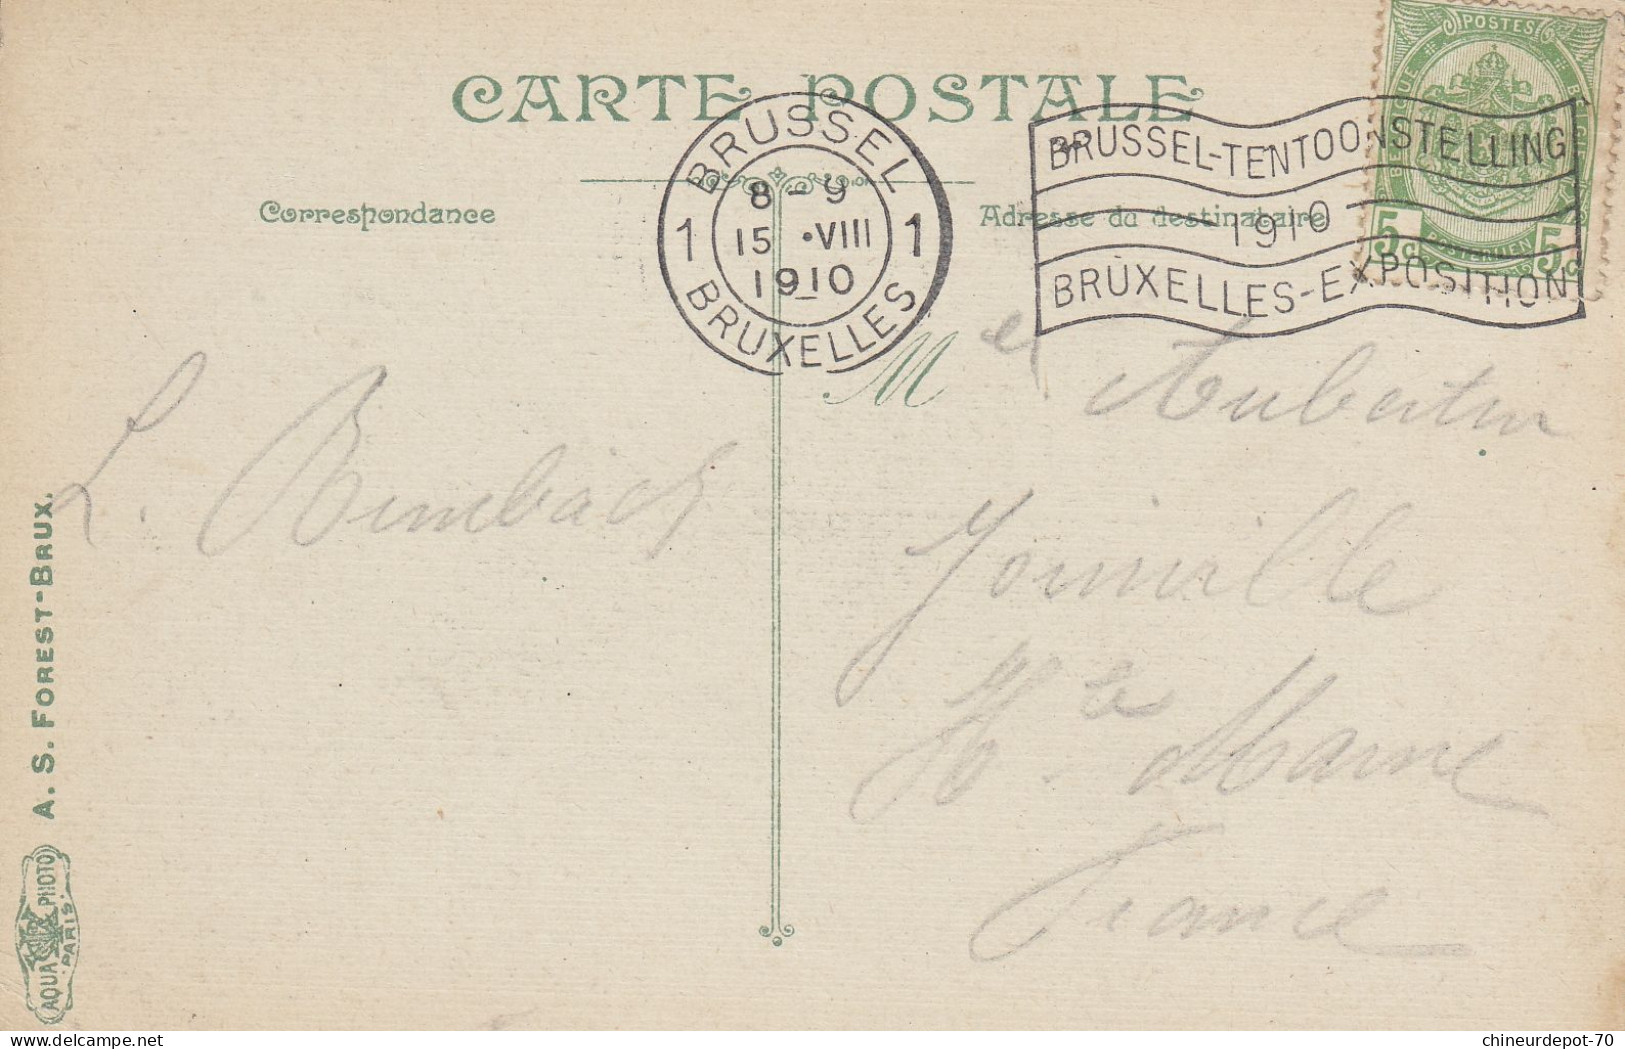 CARTE POSTALE
Correspondance
Adresse du destinataire
BRUSSEL
1 1
8-9
15 •VIII
1910
BRUXELLES
BRUSSEL-TENTOONSTELLING
1910
BRUXELLES-EXPOSITION
POSTES
BELGIQUE
5c 5c
L.
M
Aubertin
Joinville
Hte Marne
France
A. S. FOREST-BRUX.
AQUA PHOTO
PARIS
delcampe.net
chineurdepot-70